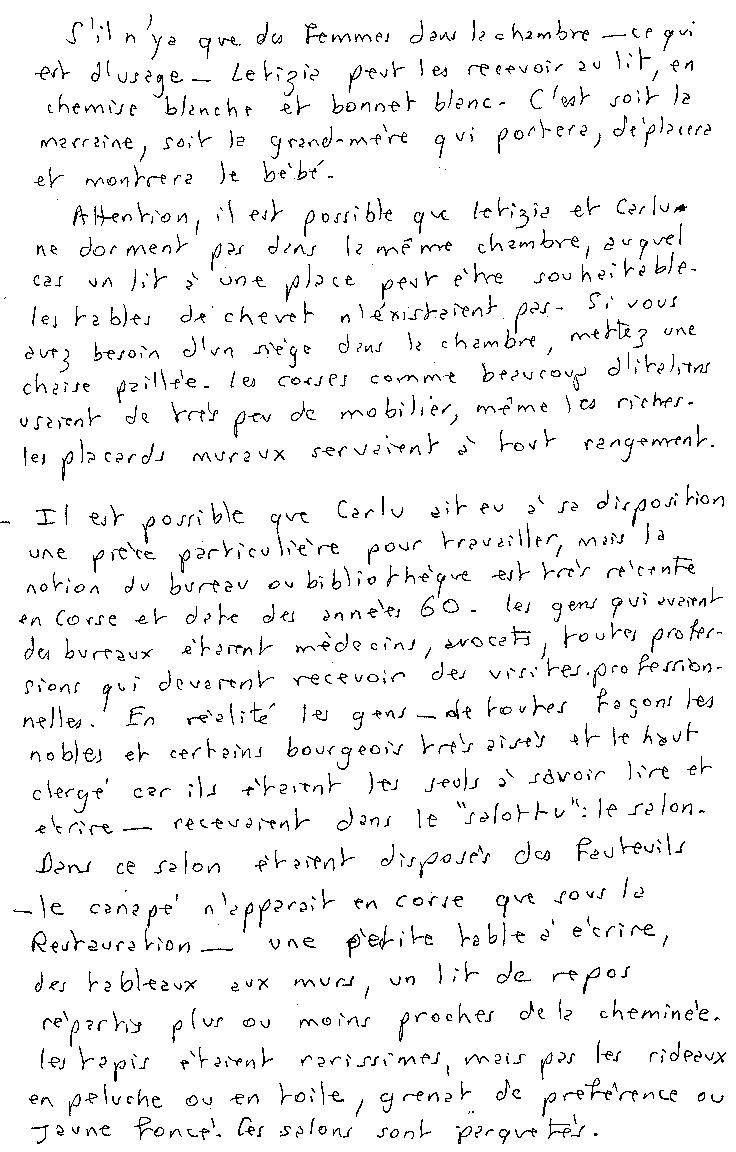 S'il n'ya que des femmes dans la chambre — ce qui
est d'usage — Letizia peut les recevoir au lit, en
chemise blanche et bonnet blanc. C'est soit la
marraine, soit la grand-mère qui portera, déplacera
et montrera le bébé.
Attention, il est possible que Letizia et Carlu
ne dorment pas dans la même chambre, auquel
cas un lit à une place peut être souhaitable.
les tables de chevet n'existaient pas. Si vous
avez besoin d'un siège dans la chambre, mettez une
chaise paillée. les corses comme beaucoup d'italiens
usaient de très peu de mobilier, même les riches.
les placards muraux servaient à tout rangement.
- Il est possible que Carlu ait eu à sa disposition
une pièce particulière pour travailler, mais la
notion du bureau ou bibliothèque est très récente
en Corse et date des années 60. les gens qui avaient
des bureaux étaient médecins, avocats, toutes profes-
sions qui devaient recevoir des visites profession-
nelles. En réalité les gens — de toutes façons les
nobles et certains bourgeois très aisés et le haut
clergé car ils étaient les seuls à savoir lire et
écrire — recevaient dans le "salottu": le salon.
Dans ce salon étaient disposés des fauteuils
— le canapé n'apparait en corse que sous la
Restauration — une petite table à écrire,
des tableaux aux murs, un lit de repos
répartis plus ou moins proches de la cheminée.
les tapis étaient rarissimes, mais pas les rideaux
en peluche ou en toile, grenat de préférence ou
jaune foncé. Ces salons sont parquetés.